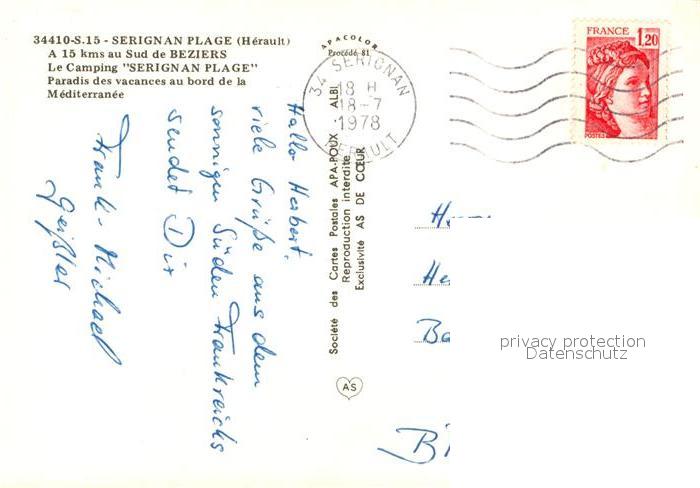 34410-S.15 - SERIGNAN PLAGE (Hérault)
A 15 kms au Sud de BEZIERS
Le Camping "SERIGNAN PLAGE"
Paradis des vacances au bord de la
Méditerranée
APACOLOR
Procédé 81
34 SERIGNAN
18 H
18-7
1978
HERAULT
FRANCE 1,20
POSTES
Hallo Herbert.
viele Grüße aus dem
sonnigen Süden Frankreichs
sendet Dir
Frank-Michael
Geißler
Société des Cartes Postales APA-POUX ALBI
Reproduction interdite
Exclusivité AS DE CŒUR
AS
H
He
Ba
privacy protection
Datenschutz